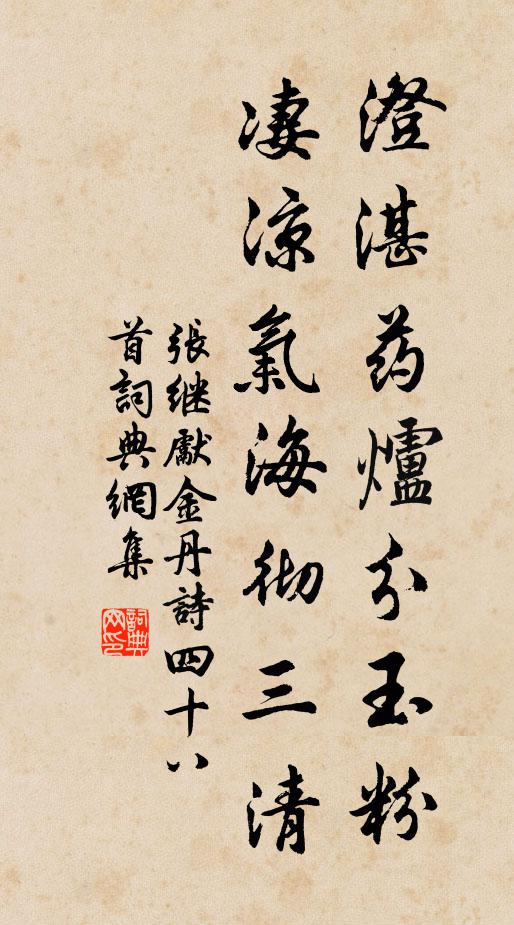 澄湛药爐分玉粉
凄凉氣海彻三清
張继獻金丹詩四十八
首詞典網集
詞典
网印